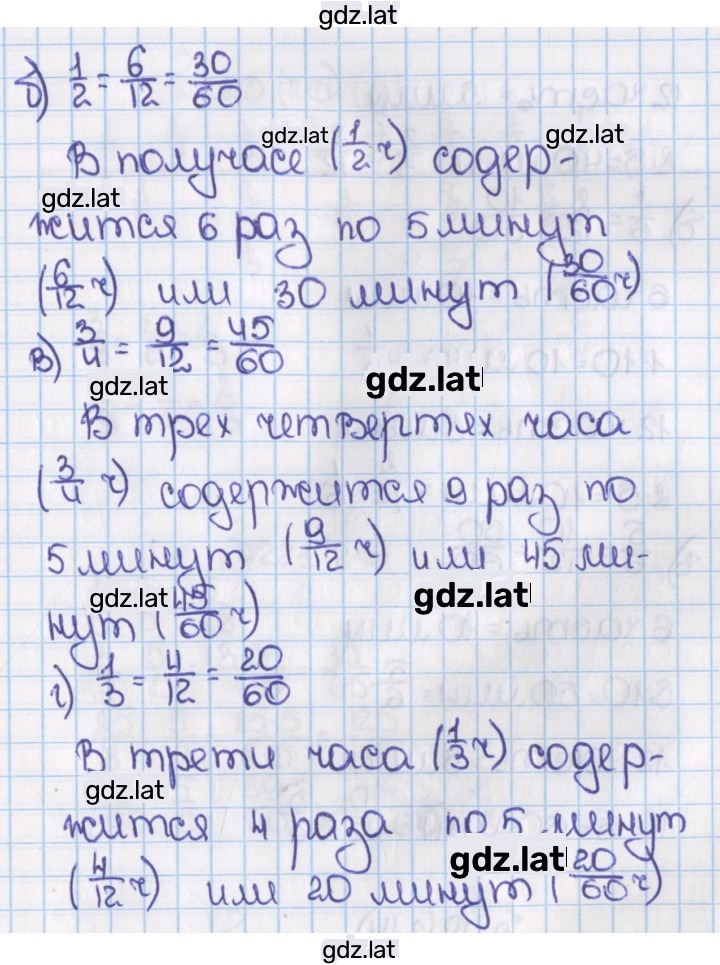 gdz.lat
б) 1/2 = 6/12 = 30/60
gdz.lat gdz.lat
В получасе (1/2 ч) содер-
gdz.lat
жится 6 раз по 5 минут
(6/12 ч) или 30 минут (30/60 ч)
в) 3/4 = 9/12 = 45/60
gdz.lat gdz.lat
В трех четвертях часа
(3/4 ч) содержится 9 раз по
5 минут (9/12 ч) или 45 ми-
gdz.lat gdz.lat
нут (45/60 ч)
г) 1/3 = 4/12 = 20/60
В трети часа (1/3 ч) содер-
gdz.lat
жится 4 раза по 5 минут
gdz.lat
(4/12 ч) или 20 минут (20/60 ч)
gdz.lat